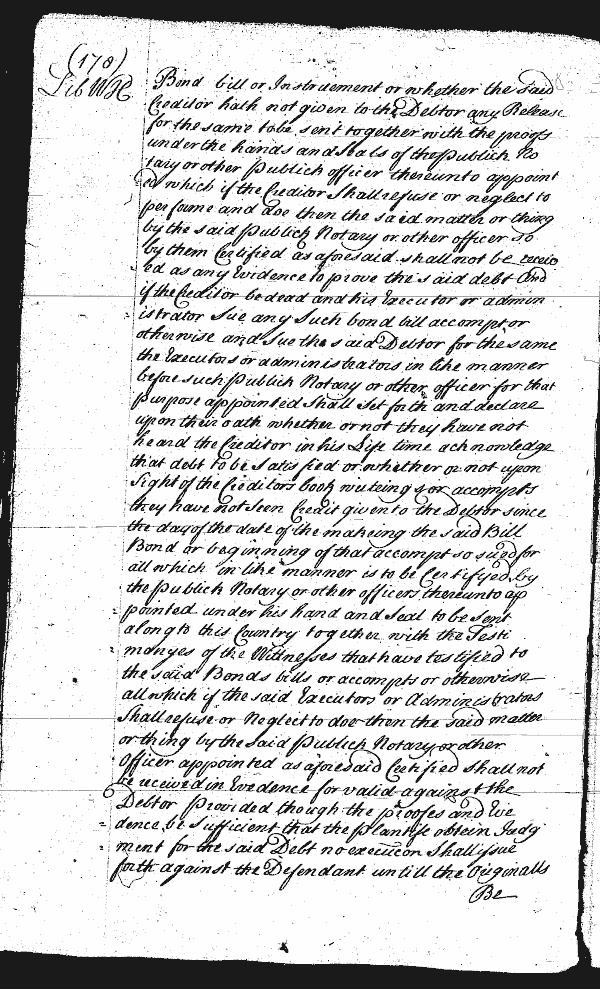 (178)
Lib WH
Bond bill or Instruement or whether the said
Creditor hath not given to the Debtor any Release
for the same to be sent together with the proofs
under the hands and seals of the publick No
tary or other publick officer thereunto appoint
ed which if the Creditor Shall refuse or neglect to
performe and doe then the said matter or thing
by the said publick Notary or other officer so
by them Certified as aforesaid shall not be receiv
ed as any Evidence to prove the said debt And
if the Creditor be dead and his Executor or admin
istrator Sue any Such bond bill accompt or
otherwise and sue the said Debtor for the same
the Executors or administrators in like manner
before such publick Notary or other officer for that
purpose appointed shall Set forth and declare
upon their oath whether or not they have not
heard the Creditor in his Life time acknowledge
that debt to be satisfied or whether or not upon
sight of the Creditors book writeings or accompts
they have not seen Credit given to the Debtor since
the day of the date of the makeing the said Bill
Bond or beginning of that accompt so sued for
all which in like manner is to be Certifyed by
the publick Notary or other officers thereunto ap
pointed under his hand and Seal to be sent
along to this Country together with the Testi
monyes of the Wittnesses that have testified to
the said Bonds bills or accompts or otherwise
all which if the said Executors or Administrators
Shall refuse or Neglect to doe then the said matter
or thing by the said Publick Notary or other
Officer appointed as aforesaid Certified shall not
be received in Evedence for valid against the
Debtor Provided though the proofes and Eve
dence be sufficient that the plantife obtein Judg
ment for the said Debt no execucon shall issue
forth against the Defendant untill the Originalls
Be